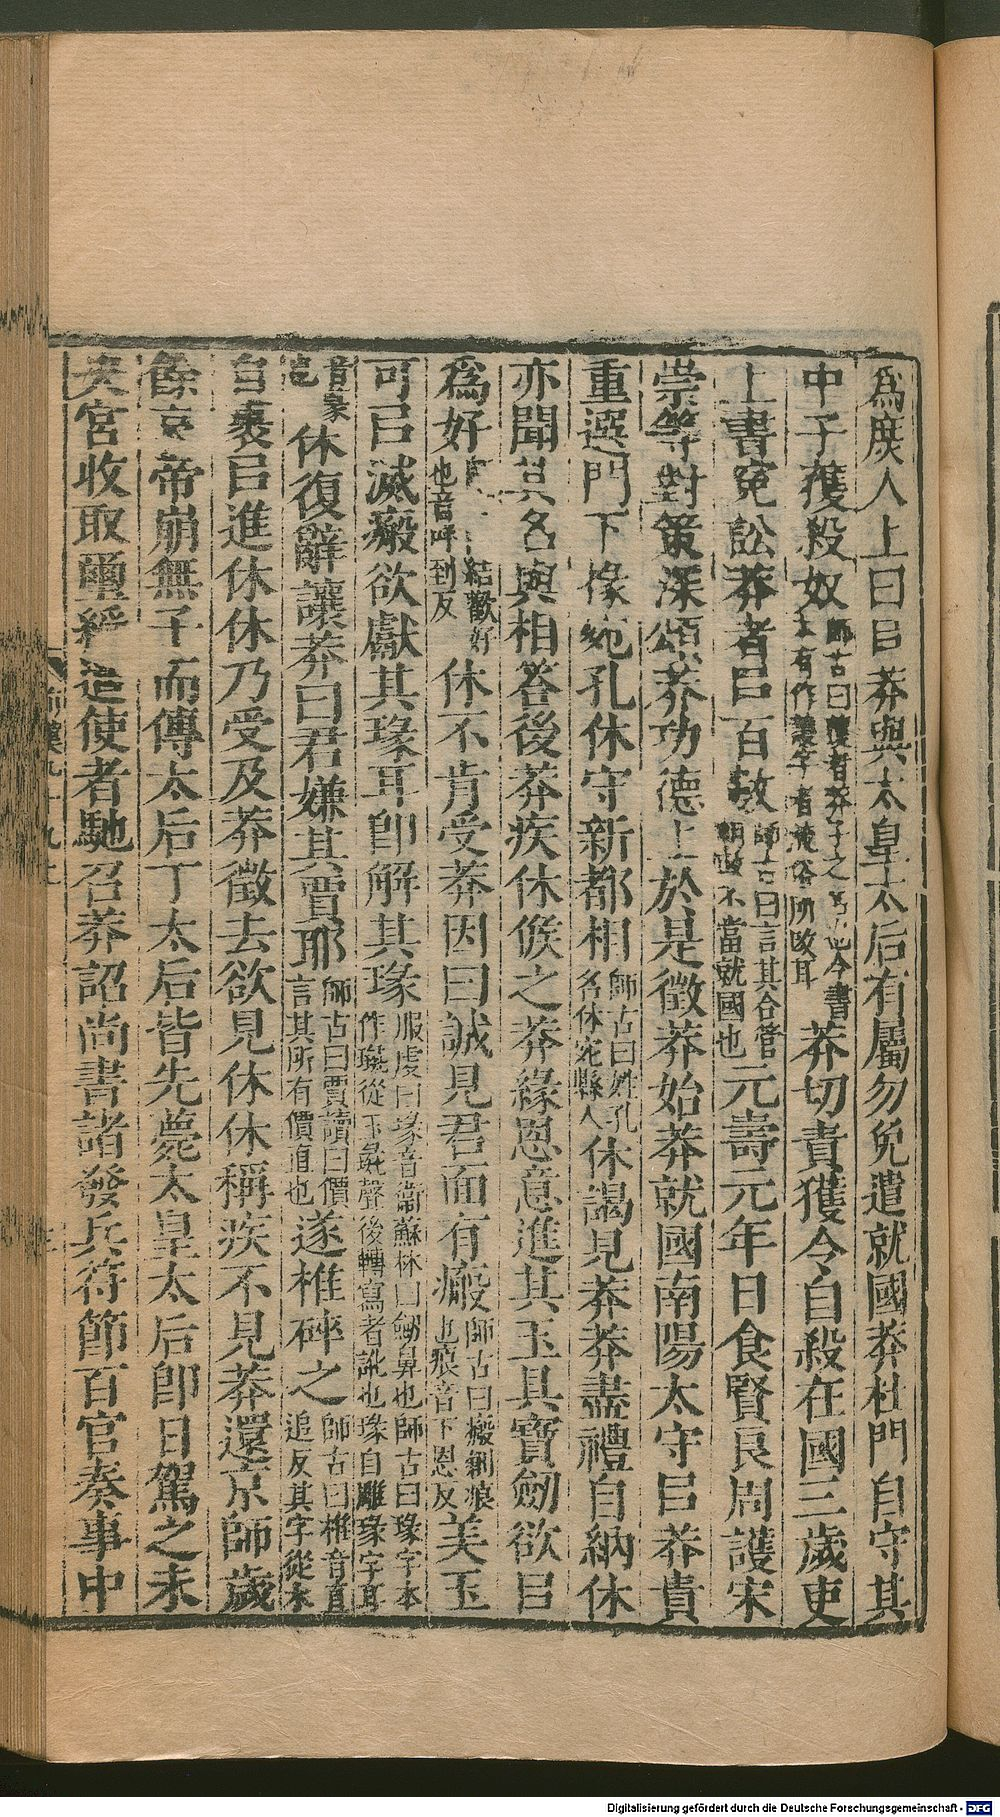 為庶人上曰㠯莽與太皇太后有屬勿免遣就國莽杜門自守其
中子獲殺奴師古曰獲者莽子之名也今書本有作護字者流俗所改耳莽切責獲令自殺在國三歲吏
上書寃訟莽者㠯百數師古曰言其合管朝政不當就國也元壽元年日食賢良周護宋
崇等對策深頌莽功德上於是徵莽始莽就國南陽太守㠯莽貴
重選門下掾宛孔休守新都相師古曰姓孔名休宛縣人休謁見莽莽盡禮自納休
亦聞其名與相答後莽疾休候之莽緣恩意進其玉具寶劒欲㠯
為好結歡好也音呼到反休不肯受莽因曰誠見君面有瘢師古曰瘢創痕也痕音下恩反美玉
可㠯滅瘢欲獻其瑑耳卽解其瑑服虔曰瑑音衞蘇林曰劒鼻也師古曰瑑字本作璏從玉彘聲後轉寫者訛也瑑自雕瑑字耳
音篆也休復辭讓莽曰君嫌其賈耶師古曰賈讀曰價言其所有價直也遂椎碎之師古曰椎音直追反其字從木
自裹㠯進休休乃受及莽徵去欲見休休稱疾不見莽還京師歲
餘哀帝崩無子而傅太后丁太后皆先薨太皇太后卽日駕之未
央宮收取璽綬遣使者馳召莽詔尚書諸發兵符節百官奏事中
前漢九十九上
Digitalisierung gefördert durch die Deutsche Forschungsgemeinschaft - DFG